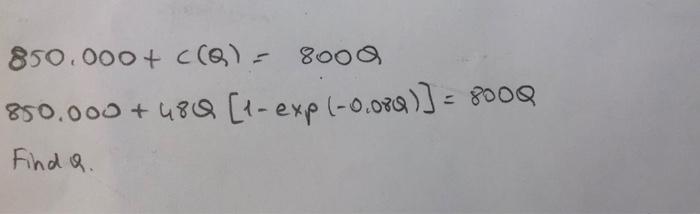 850.000 + c(Q) = 800Q
850.000 + 48Q [1-exp(-0.08Q)] = 800Q
Find Q.